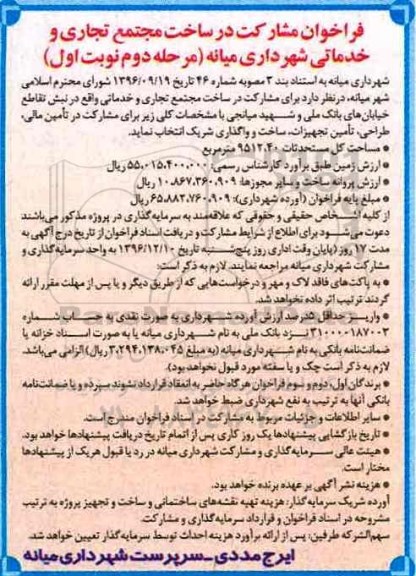 فراخوان مشارکت در ساخت مجتمع تجاری و
خدماتی شهرداری میانه (مرحله دوم نوبت اول)
شهرداری میانه به استناد بند ۳ مصوبه شماره ۴۶ تاریخ ۱۳۹۶/۰۹/۱۹ شورای محترم اسلامی
شهر میانه، درنظر دارد برای مشارکت در ساخت مجتمع تجاری و خدماتی واقع در نبش تقاطع
خیابان‌های بانک ملی و شهید میانجی با مشخصات کلی زیر برای مشارکت در تأمین مالی،
طراحی، تأمین تجهیزات، ساخت و واگذاری شریک انتخاب نماید.
• مساحت کل مستحدثات ۹۵۱۲،۴۰ مترمربع
• ارزش زمین طبق برآورد کارشناس رسمی: ۵۵،۰۱۵،۴۰۰،۰۰۰ ریال
• ارزش پروانه ساخت و سایر مجوزها: ۱۰،۸۶۷،۳۶۰،۹۰۹ ریال
• مبلغ پایه فراخوان (آورده شهرداری): ۶۵،۸۸۲،۷۶۰،۹۰۹ ریال
از کلیه اشخاص حقیقی و حقوقی که علاقه‌مند به سرمایه‌گذاری در پروژه مذکور می‌باشند
دعوت می‌شود برای اطلاع از شرایط مشارکت و دریافت اسناد فراخوان از تاریخ درج آگهی به
مدت ۱۷ روز (پایان وقت اداری روز پنجشنبه تاریخ ۱۳۹۶/۱۲/۱۰) به واحد سرمایه‌گذاری و
مشارکت شهرداری میانه مراجعه نمایند. لازم به ذکر است:
• به پاکت‌های فاقد لاک و مهر و درخواست‌هایی که از طریق دیگر و یا پس از مهلت مقرر ارائه
گردند ترتیب اثر داده نخواهد شد.
• واریز حداقل ۵درصد ارزش آورده شهرداری به صورت نقدی به حساب شماره
۳۱۰۰۰۰۱۸۷۰۰۳ نزد بانک ملی به نام شهرداری میانه یا به صورت اسناد خزانه یا
ضمانت‌نامه بانکی به نام شهرداری میانه (به مبلغ ۳،۲۹۴،۱۳۸،۰۴۵ ریال) الزامی می‌باشد.
لازم به ذکر است چک و یا سفته مورد قبول نخواهد بود).
• برندگان اول، دوم و سوم فراخوان هرگاه حاضر به انعقاد قرارداد نشوند سپرده و یا ضمانت‌نامه
بانکی آنها به ترتیب به نفع شهرداری ضبط خواهد شد.
• سایر اطلاعات و جزئیات مربوط به مشارکت در اسناد فراخوان مندرج است.
• تاریخ بازگشایی پیشنهادها یک روز کاری پس از اتمام تاریخ دریافت پیشنهادها خواهد بود.
• هیئت عالی سرمایه‌گذاری و مشارکت شهرداری میانه در رد یا قبول هریک از پیشنهادها
مختار است.
• هزینه نشر آگهی بر عهده برنده خواهد بود.
آورده شریک سرمایه‌گذار: هزینه تهیه نقشه‌های ساختمانی و ساخت و تجهیز پروژه به ترتیب
مشروحه در اسناد فراخوان و قرارداد سرمایه‌گذاری و مشارکت.
سهم‌الشرکه طرفین: پس از ارائه برآورد هزینه احداث توسط سرمایه‌گذار تعیین خواهد شد.
ایرج مددی - سرپرست شهرداری میانه